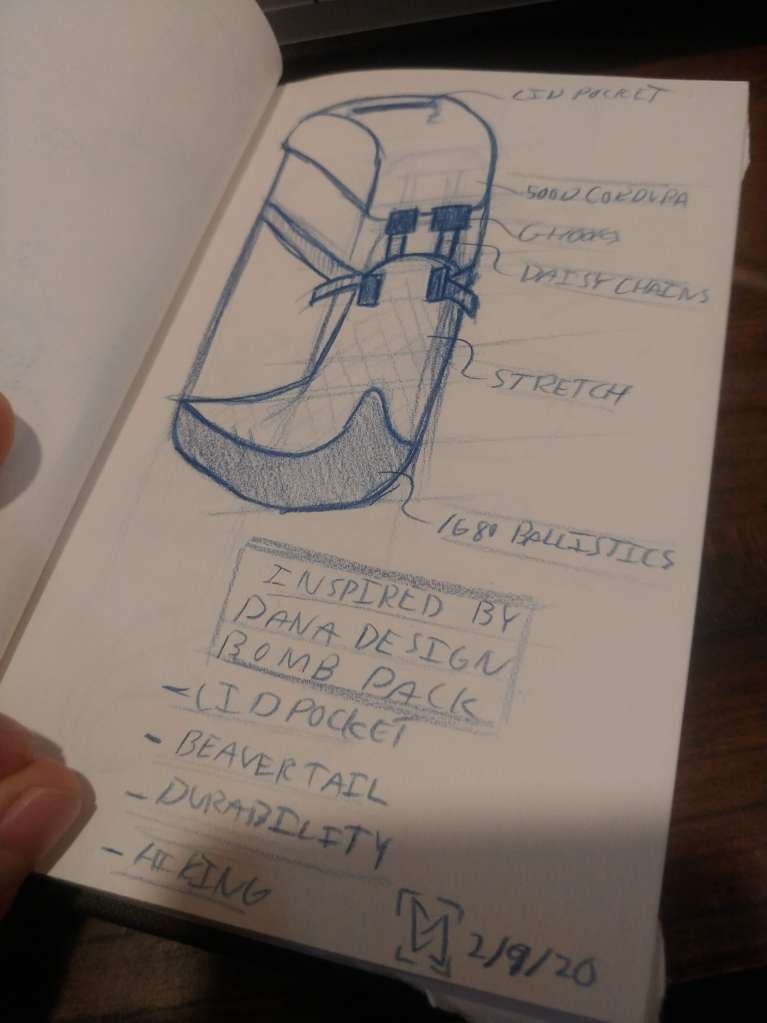 LID POCKET
500D CORDURA
G-HOOKS
DAISY CHAINS
STRETCH
1680 BALLISTICS
INSPIRED BY
DANA DESIGN
BOMB PACK
- LID POCKET
- BEAVERTAIL
- DURABILITY
- HIKING
2/9/20